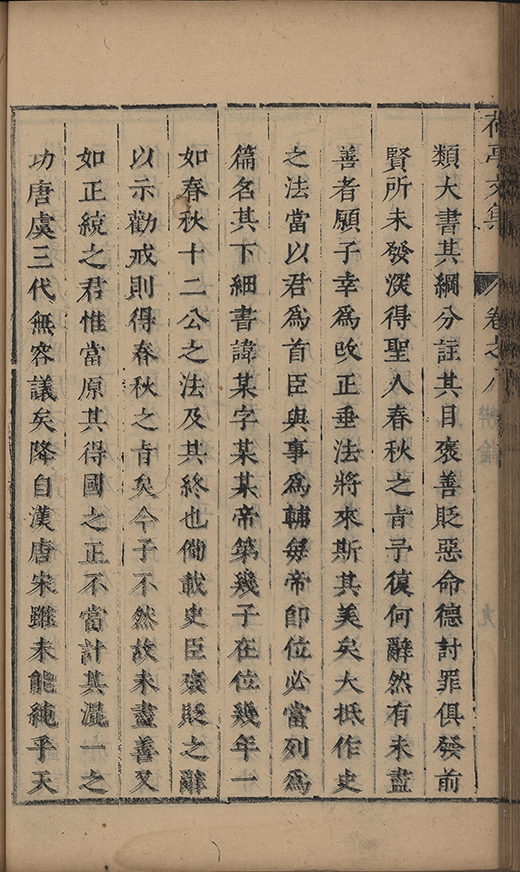 類大書其綱分註其目褒善貶惡命德討罪俱發前
賢所未發深得聖人春秋之旨予復何辭然有未盡
善者願子幸爲改正垂法將來斯其美矣大抵作史
之法當以君爲首臣與事爲輔每帝卽位必當列爲
篇名其下細書諱某字某某帝第幾子在位幾年一
如春秋十二公之法及其終也備載史臣褒貶之辭
以示勸戒則得春秋之旨矣今子不然故未盡善又
如正統之君惟當原其得國之正不當計其混一之
功唐虞三代無容議矣降自漢唐宋雖未能純乎天
卷之八